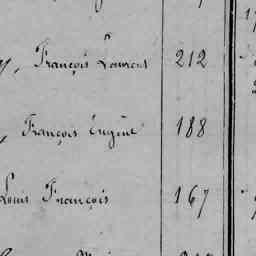 François Laurent 212
François Eugène 188
Louis François 167